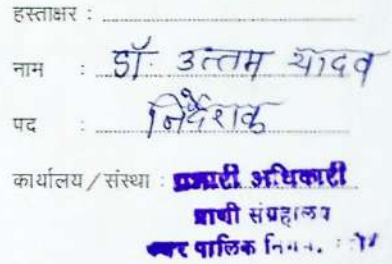 हस्ताक्षर :
नाम : डॉ. उत्तम यादव
पद : निर्देशक
कार्यालय / संस्था : प्रभारी अधिकारी
प्राणी संग्रहालय
नगर पालिक निगम,